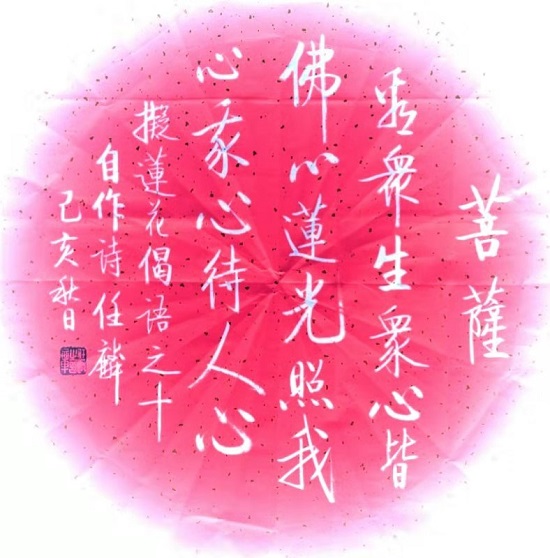 菩薩
看衆生衆心皆
佛心蓮光照我
心我心待人心
擬蓮花偈語之十
自作詩任麟
己亥秋日